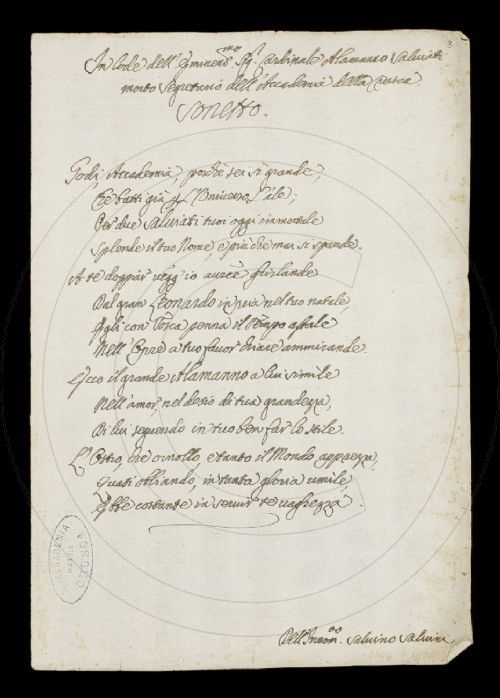 8
In lode dell'Eminend.mo Sig. Cardinale Alamanno Salviati
morto Segretario dell'Accademia della Crusca
Sonetto.
Godi, Accademia, poichè sei sì grande,
Che batti già per l'Universo l'ale;
Per due Salviati tuoi oggi immortale
Splende il tuo Nome, e più che mai si spande.
A te doppiar vegg'io auree ghirlande
Dal gran Leonardo in pria nel tuo natale,
Egli con Tosca penna il Tempo assale
Nell'Opre a tuo favor chiare ammirande.
Ecco il grande Alamanno a lui simile
Nell'amor, nel desio di tua grandezza,
Di lui seguendo in tuo ben far lo stile.
L'Ostro, che ornollo, e tanto il Mondo apprezza,
Quasi obliando, in tanta gloria umile,
Ebbe costante in servir te vaghezza.
ACCADEMIA DELLA CRUSCA
Dell'Innom.to Salvino Salvini